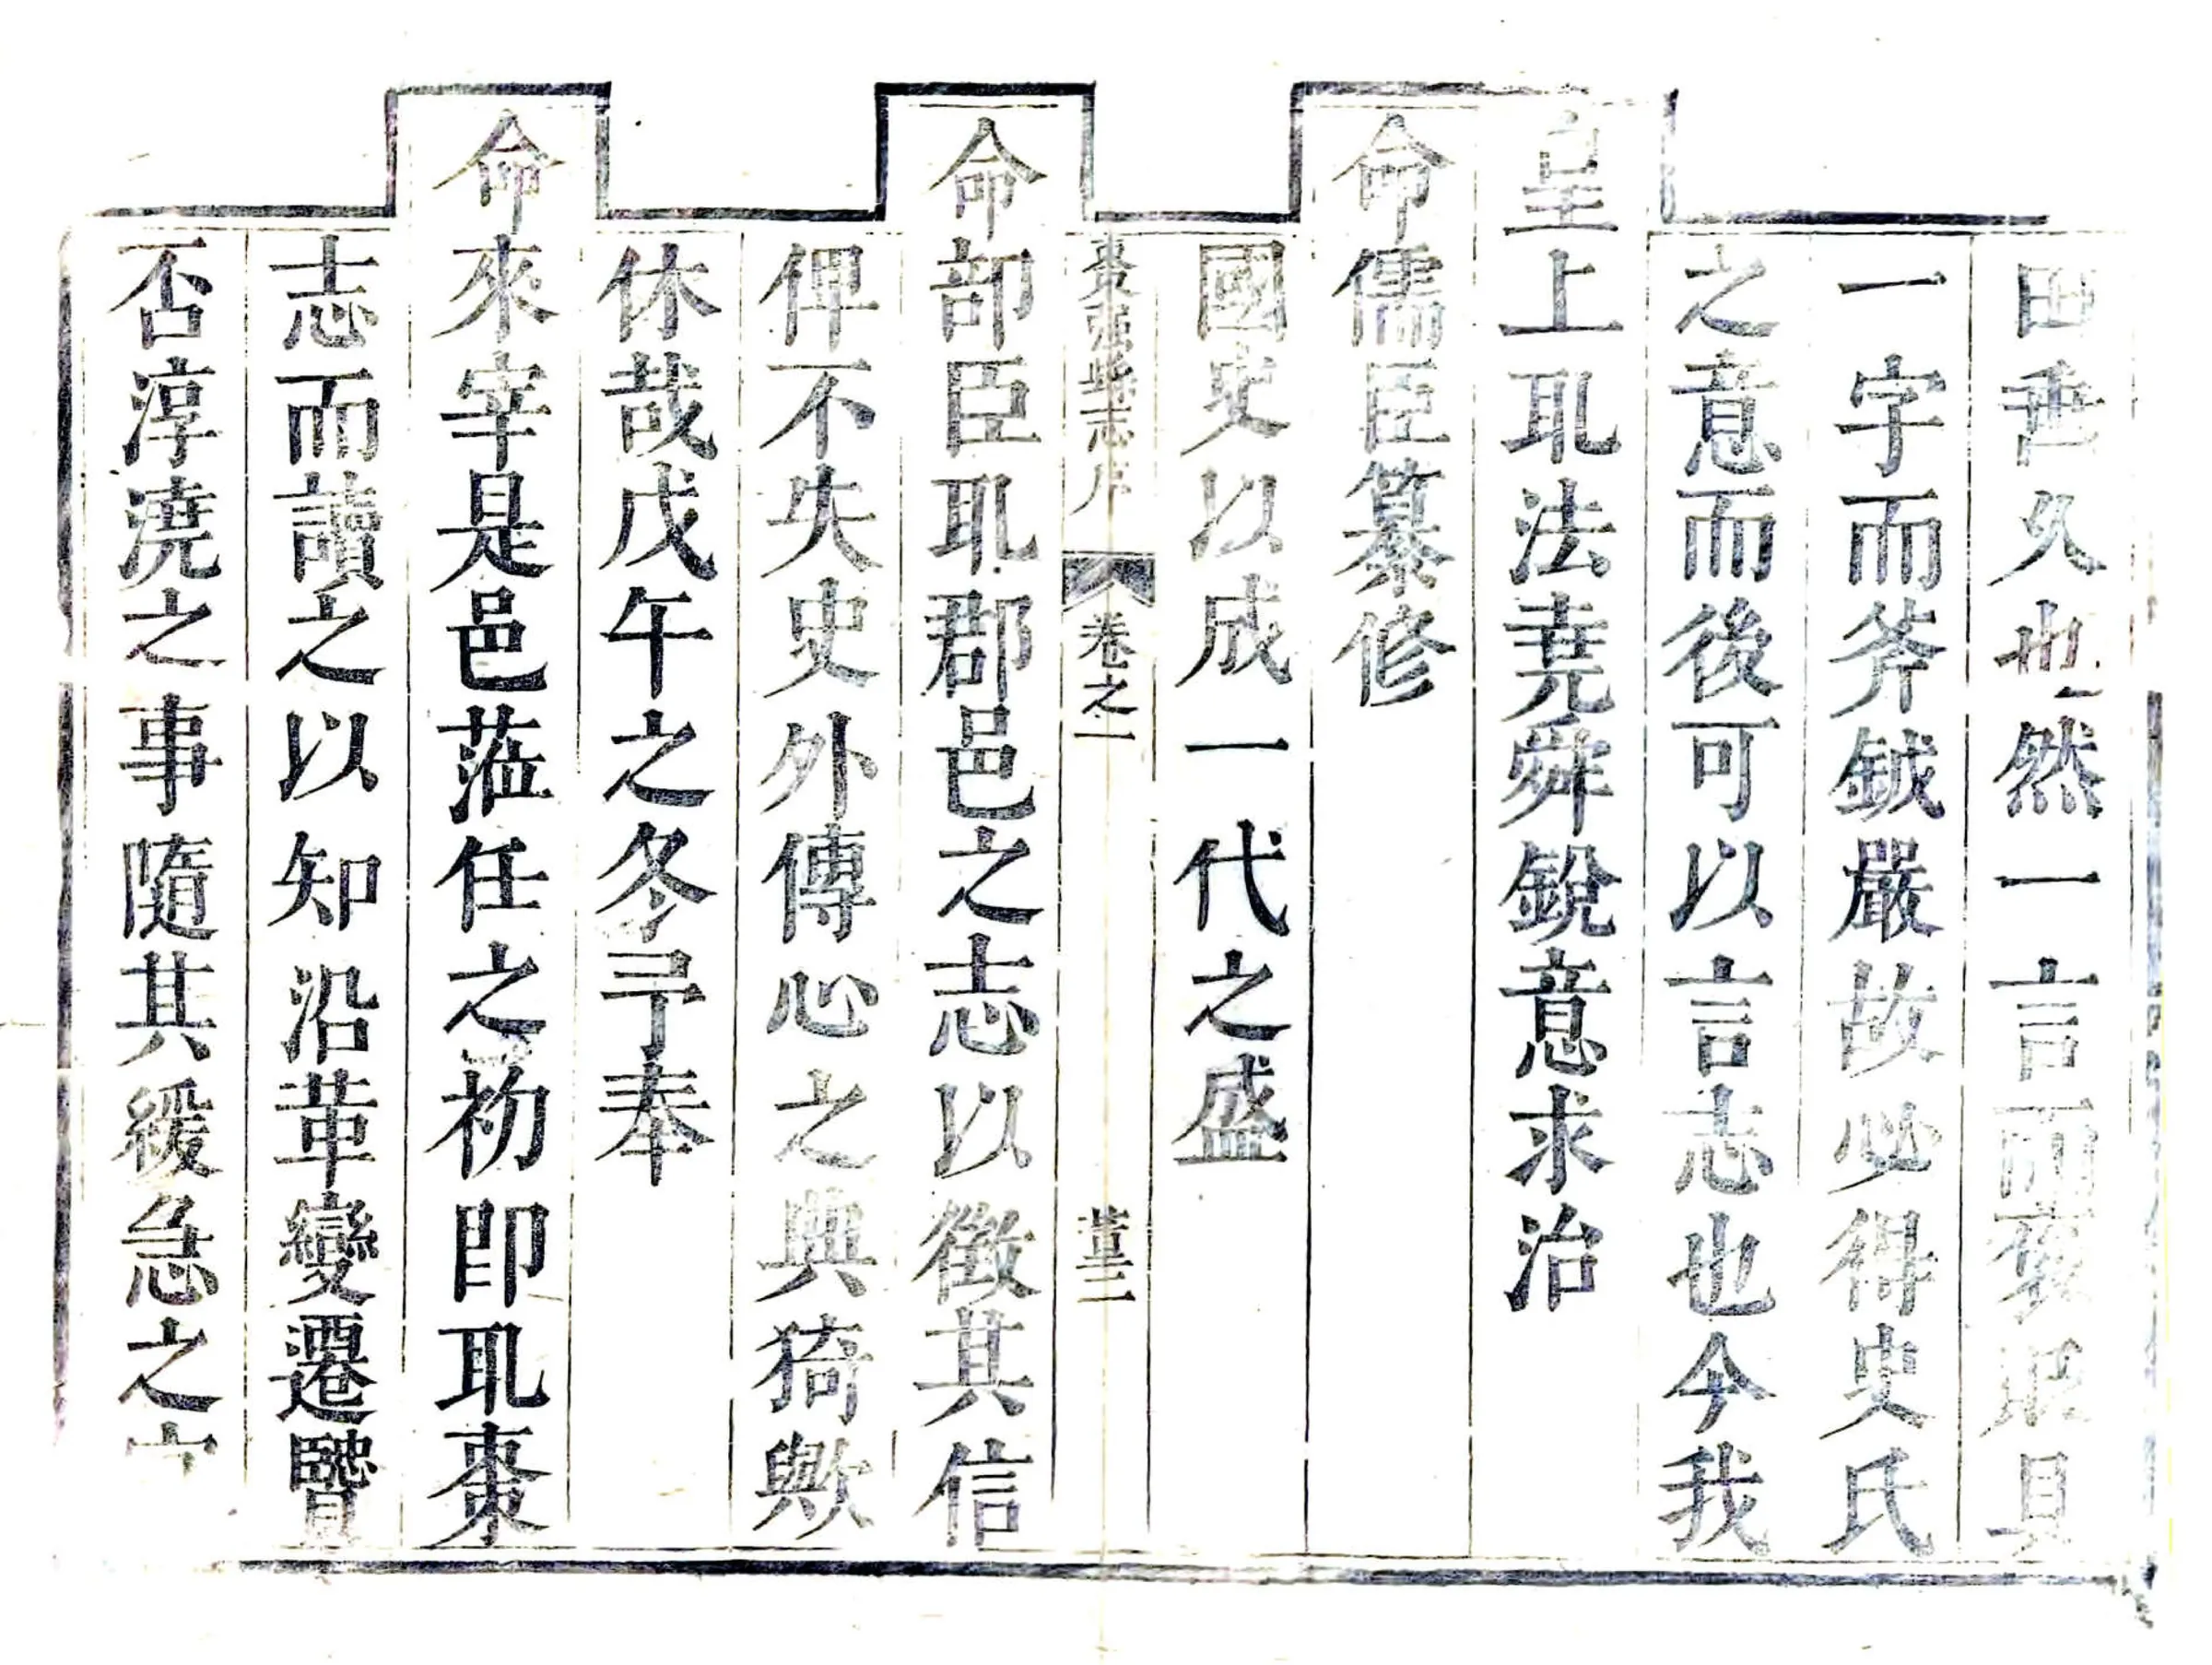 田乖久也然一言而褒貶具
一字而斧鉞嚴故必得史氏
之意而後可以言志也今我
皇上耴法堯舜銳意求治
命儒臣纂修
國史以成一代之盛
棗强縣志序 卷之一 董二
命部臣耴郡邑之志以徵其信
俾不失史外傳心之典猗歟
休哉戊午之冬予奉
命來宰是邑蒞任之初即耴棗
志而讀之以知沿革變遷賢
否淳澆之事隨其緩急之